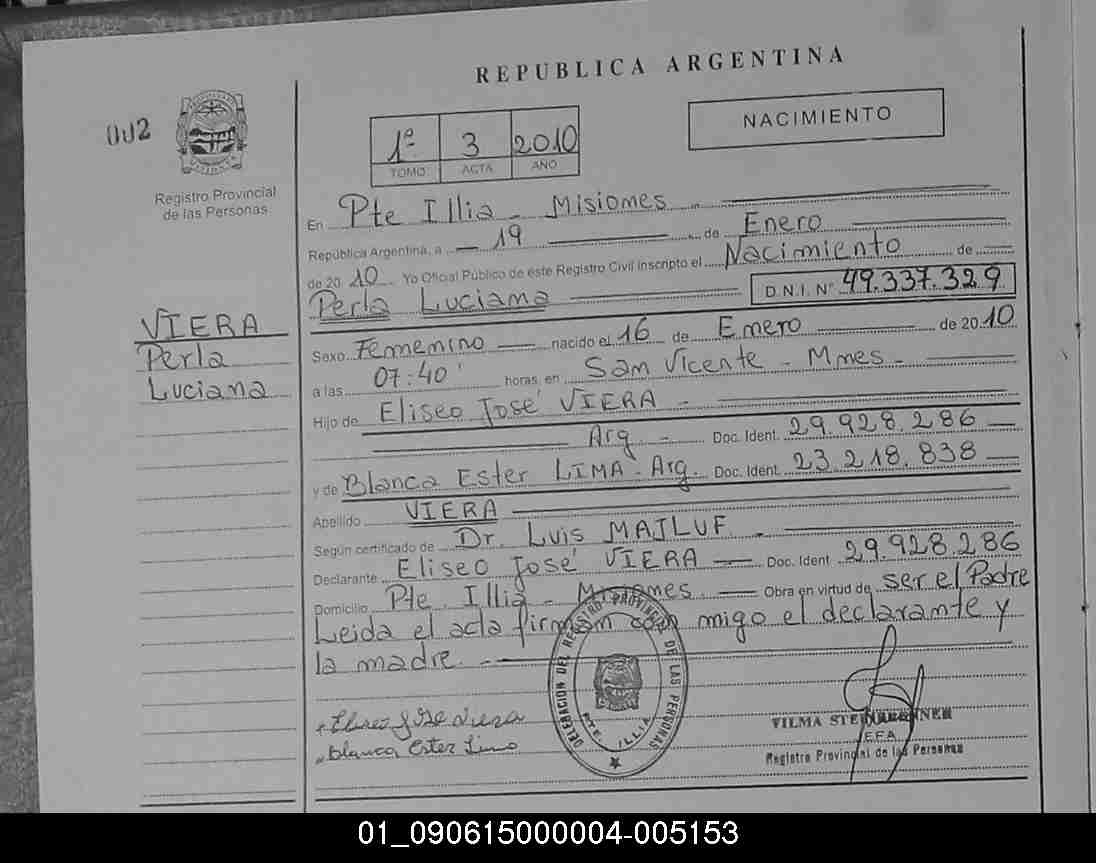 REPUBLICA ARGENTINA
002
Registro Provincial
de las Personas
1º 3 2010
TOMO ACTA AÑO
NACIMIENTO
En Pte Illia - Misiones
República Argentina, a 19 de Enero
de 2010 Yo Oficial Público de este Registro Civil inscripto el Nacimiento de
Perla Luciana D.N.I. Nº 49.337.329
VIERA
Perla
Luciana
Sexo Femenino nacido el 16 de Enero de 2010
a las 07:40' horas, en San Vicente - Mnes -
Hijo de Eliseo José VIERA -
Arg - Doc. Ident. 29.928.286
y de Blanca Ester LIMA - Arg. Doc. Ident. 23.218.838
Apellido VIERA
Según certificado de Dr. Luis MAILUF -
Declarante Eliseo José VIERA Doc. Ident. 29.928.286
Domicilio Pte. Illia - Misiones. Obra en virtud de ser el Padre
Leida el acta firman con migo el declarante y
la madre. -
DELEGACION DEL REGISTRO PROVINCIAL DE LAS PERSONAS
PTE. ILLIA
Blanca Ester Lima
VILMA
JEFA
Registro Provincial de las Personas
01_090615000004-005153